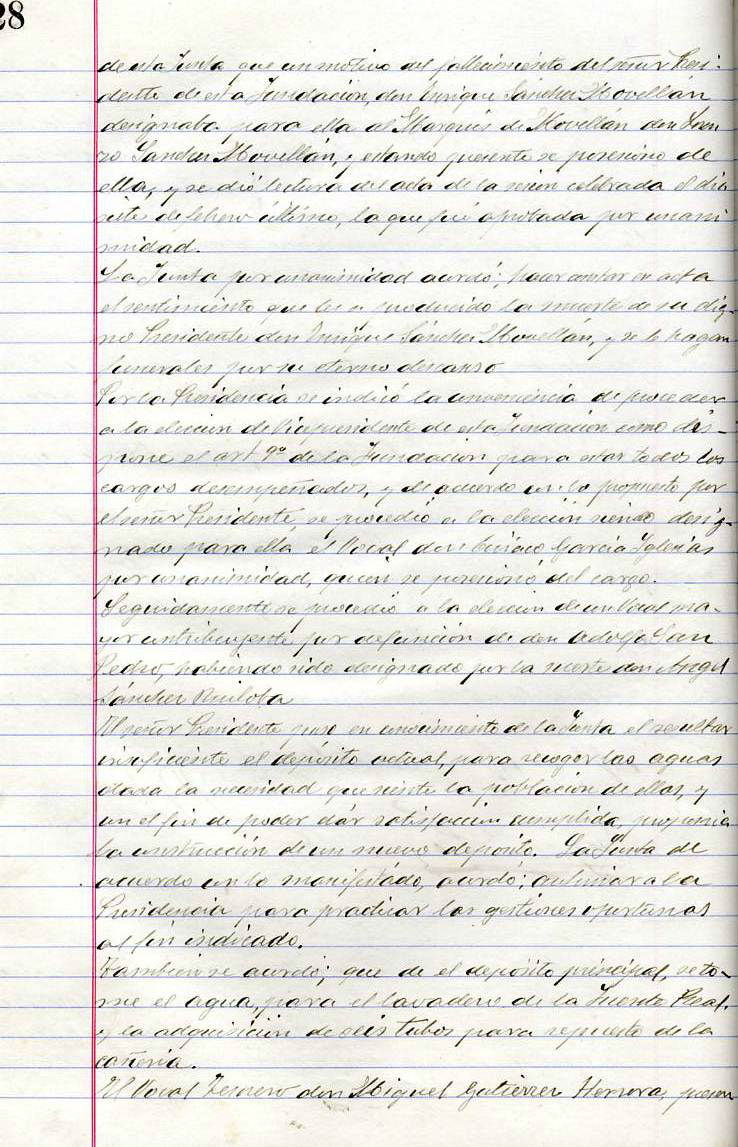 28
de esta Junta que con motivo del fallecimiento del señor Presi-
dente de esta Fundación, don Enrique Sánchez Movellán
designaba para ella al Marqués de Movellán don Loren
zo Sánchez Movellán, y estando presente se posesionó de
ella, y se dió lectura del acta de la sesión celebrada el día
siete de febrero último, la que fué aprobada por unani
midad.
La Junta por unanimidad acordó; hacer constar en acta
el sentimiento que les a producido la muerte de su dig-
no Presidente don Enrique Sánchez Movellán, y se le hagan
funerales por su eterno descanso
Por la Presidencia se indicó la conveniencia de proceder
a la elección de Vicepresidente de esta Fundación como dis-
pone el art 9º de la Fundación para estar todos los
cargos desempeñados, y de acuerdo con lo propuesto por
el señor Presidente, se procedió a la elección siendo desig-
nado para ella el Vocal don Ciriaco García Iglesias
por unanimidad, quien se posesionó del cargo.
Seguidamente se procedió a la elección de un Vocal ma-
yor contribuyente por defunción de don Adolfo San
Pedro, habiendo sido designado por la suerte don Angel
Sánchez Ruiloba
El señor Presidente puso en conocimiento de la Junta el resultar
insuficiente el depósito actual, para recoger las aguas
dada la necesidad que siente la población de ellas, y
con el fin de poder dár satisfacción cumplida, proponia
la construcción de un nuevo deposito. La Junta de
acuerdo con lo manifestado, acordó; autorizar a la
Presidencia para practicar las gestiones oportunas
al fin indicado.
Tambien se acordó; que de el depósito principal, se to-
me el agua, para el lavadero de la Fuente Real,
y la adquisición de seis tubos para repuesto de la
cañeria.
El Vocal Tesorero don Miguel Gutiérrez Herrera, presen